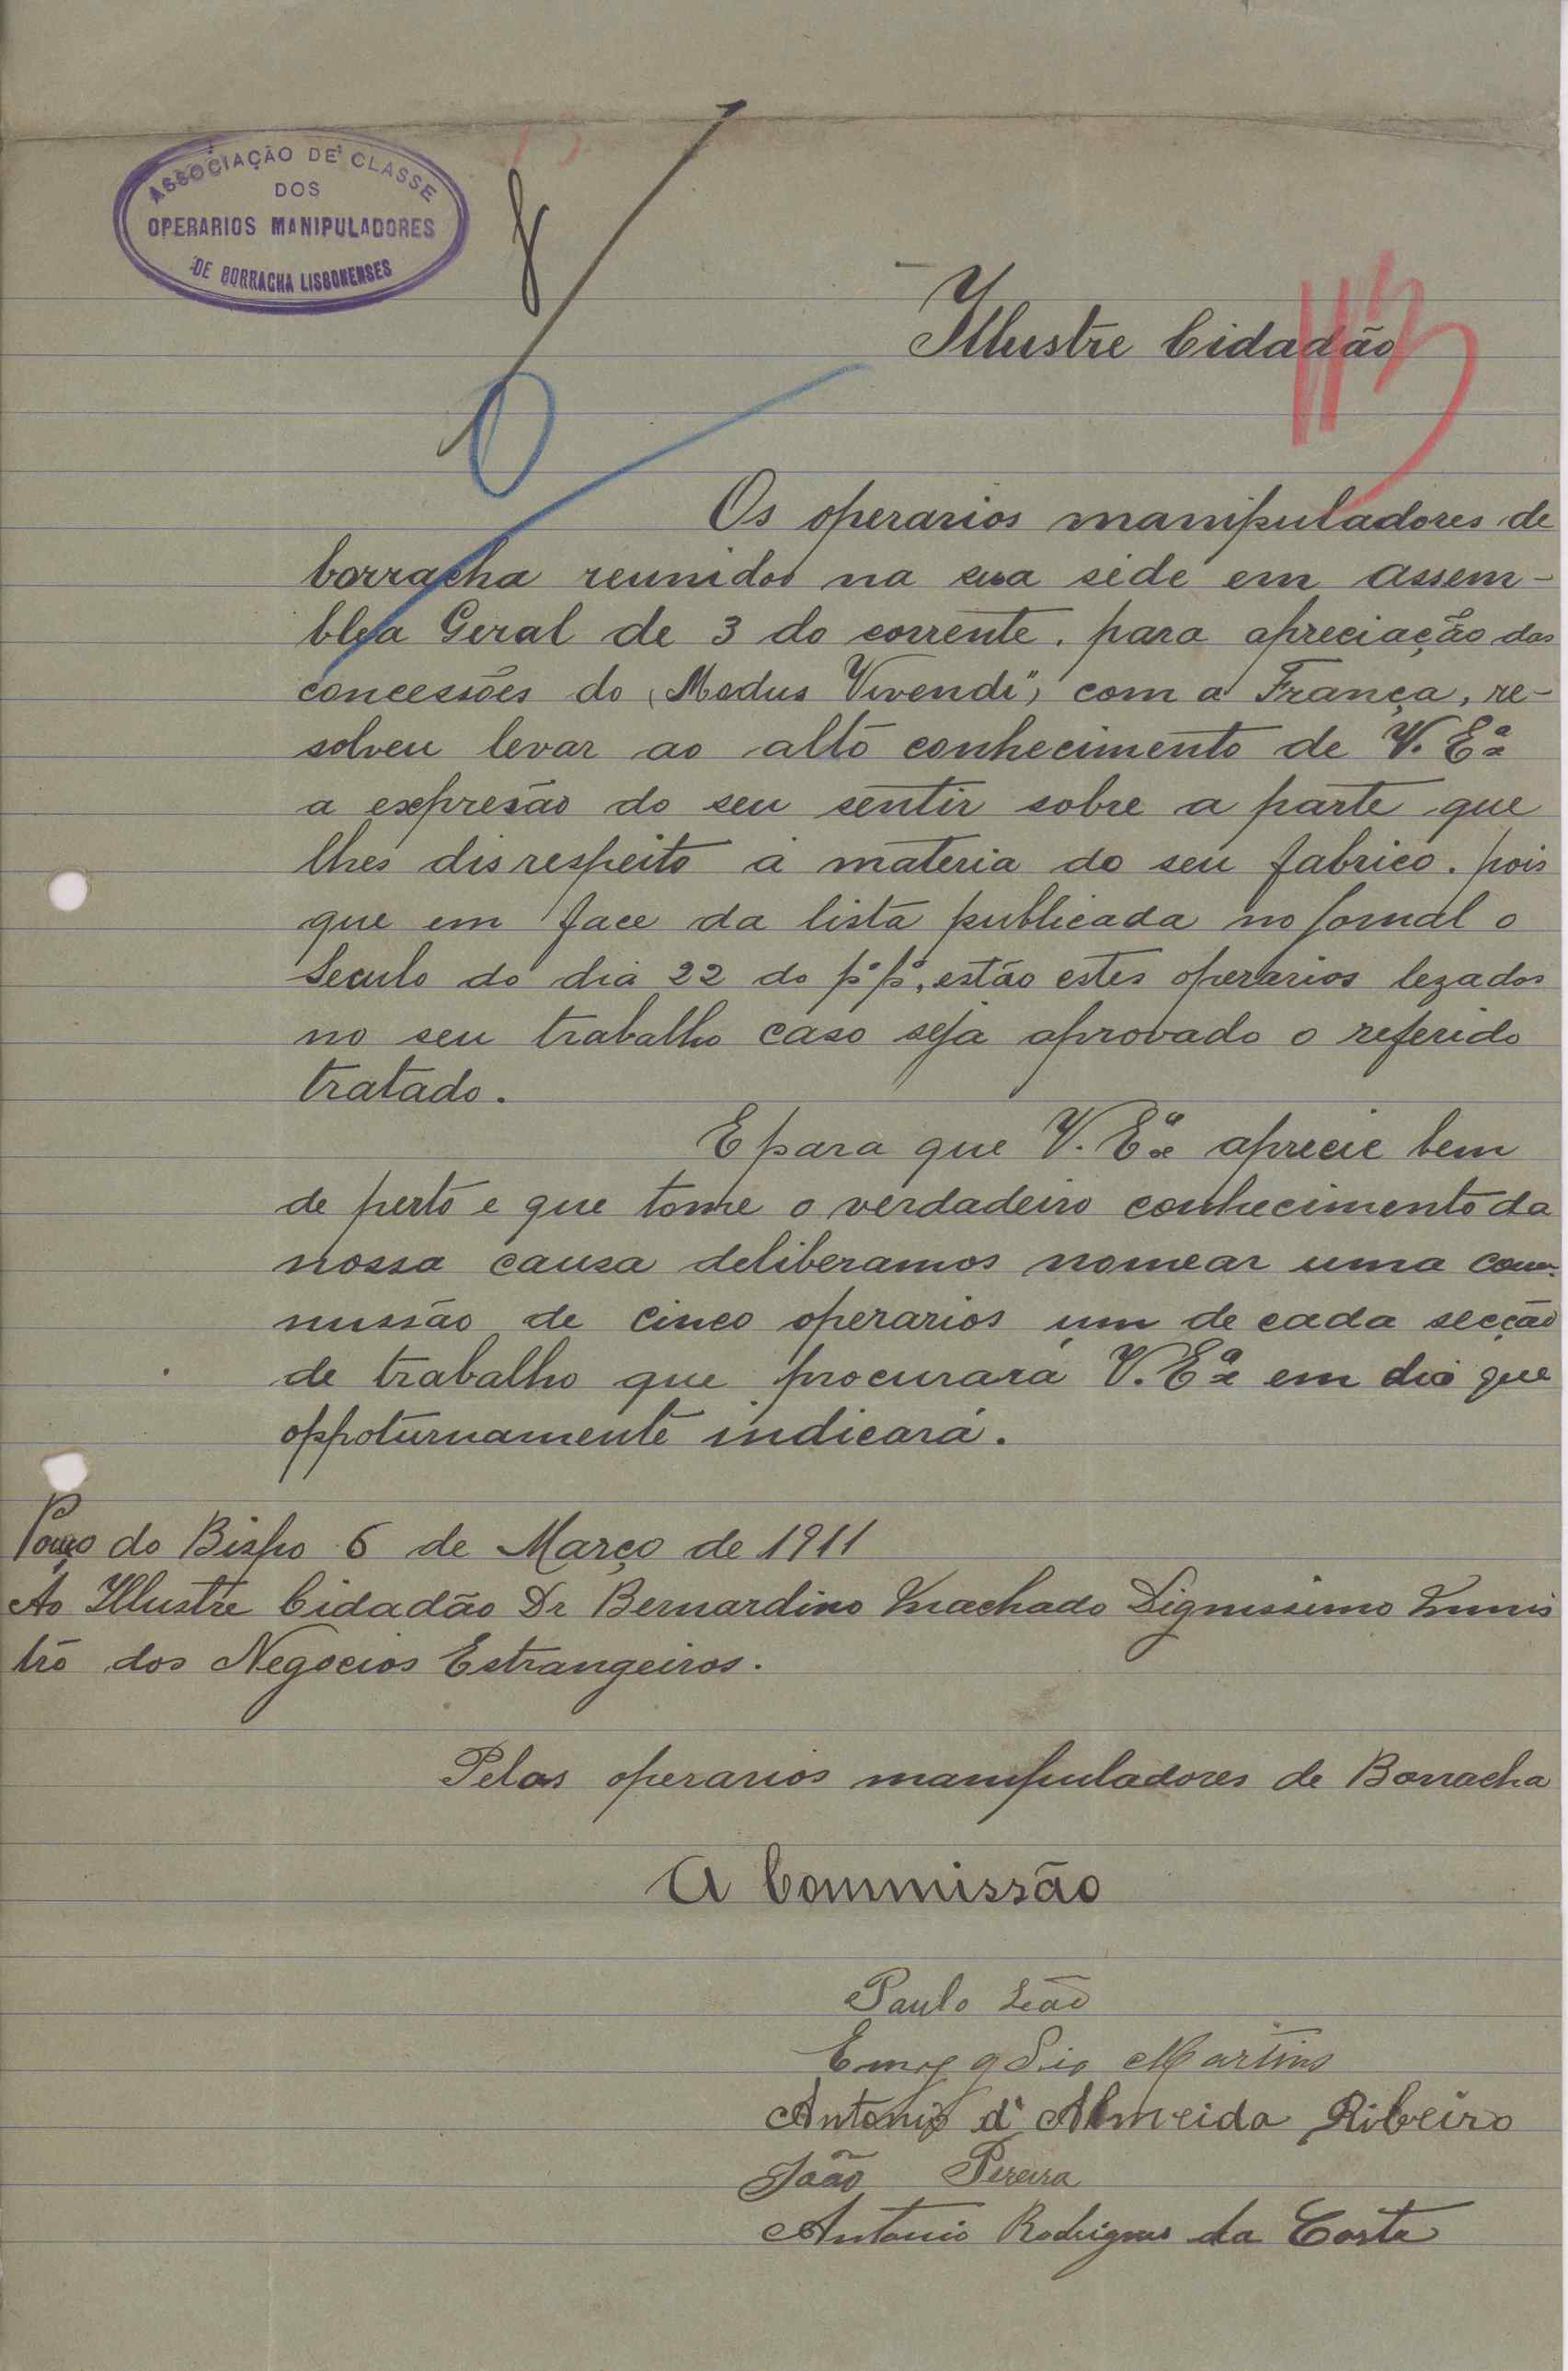 ASSOCIAÇÃO DE CLASSE
DOS
OPERARIOS MANIPULADORES
DE BORRACHA LISBONENSES
113
Illustre Cidadão
Os operarios manipuladores de
borracha reunidos na sua séde em assem-
blea Geral de 3 do corrente. para apreciação das
concessões do "Modus Vivendi", com a França, re-
solveu levar ao alto conhecimento de V. Exª
a expresão do seu sentir sobre a parte que
lhes disrespeito á materia do seu fabrico. pois
que em face da lista publicada no Jornal o
Seculo do dia 22 do pº pº, estão estes operarios lezados
no seu trabalho caso seja aprovado o referido
tratado.
E para que V. Exª aprecie bem
de perto e que tome o verdadeiro conhecimento da
nossa causa deliberamos nomear uma com-
missão de cinco operarios um de cada secção
de trabalho que procurará V. Exª em dia que
oppoturnamente indicará.
Poço do Bispo 6 de Março de 1911
Ao Illustre Cidadão Dr Bernardino Machado Dignissimo Minis
tro dos Negocios Estrangeiros.
Pelos operarios manipuladores de Borracha
A Commissão
Paulo Leão
Martins
Antonio d'Almeida Ribeiro
João Pereira
Antonio Rodrigues da Costa